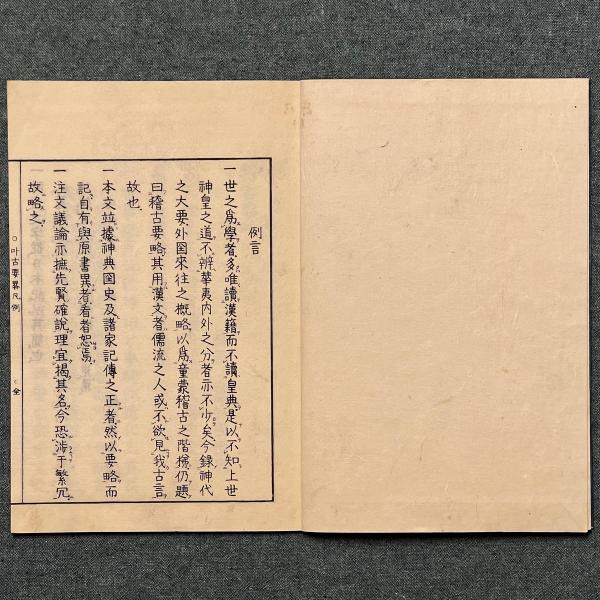 例言
一世之爲學者多唯讀漢籍而不讀皇典是以不知上世
神皇之道不辨華夷内外之分者亦不少矣今錄神代
之大要外國來往之概略以爲童蒙稽古之階梯仍題
曰稽古要略其用漢文者儒流之人或不欲見我古言
故也
一本文竝據神典國史及諸家記傳之正者然以要略而
記自有與原書異者看者恕焉
一注文議論亦摭先賢確說理宜揭其名今恐涉于繁冗
故略之
○叶古要畧凡例
○全